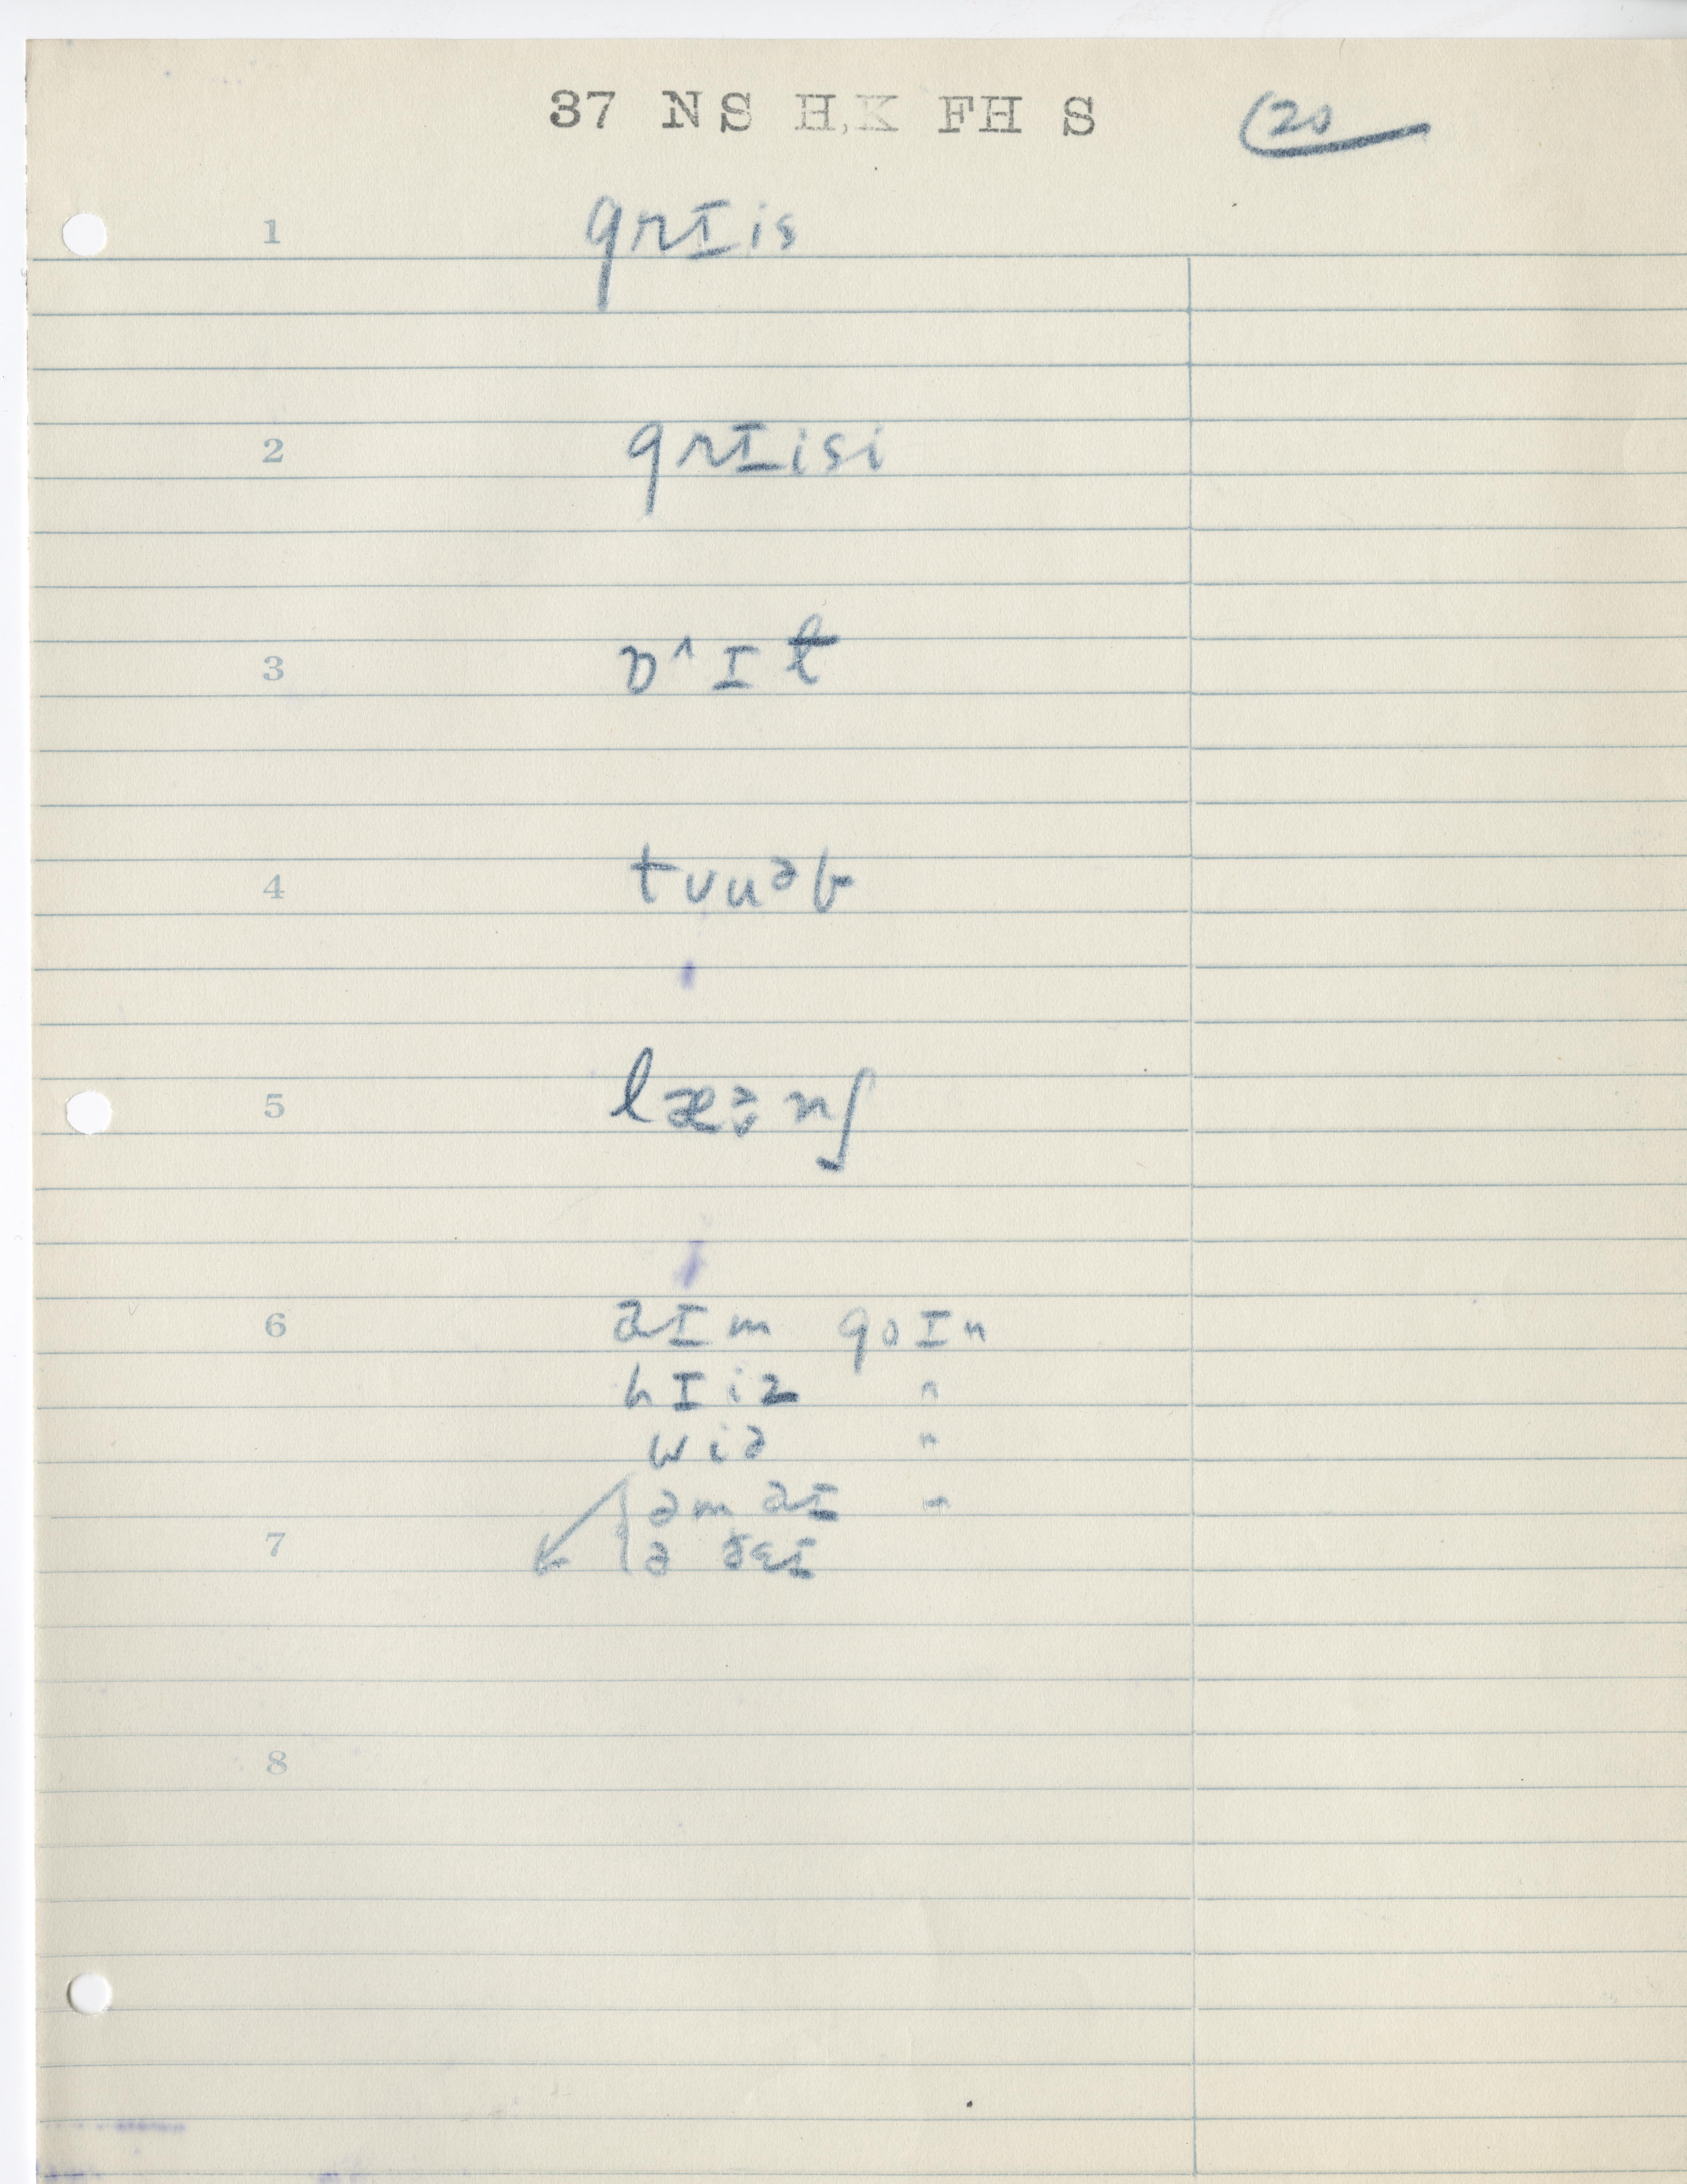 37 NS H,K FH S (20
1 grɪis
2 grɪisi
3 ɒ^ɪɫ
4 tʋuəb
5 læə̬nʃ
6 aɪm goɪn
hɪiz "
wiə "
əm aɪ "
7 ə ðɛɪ
8